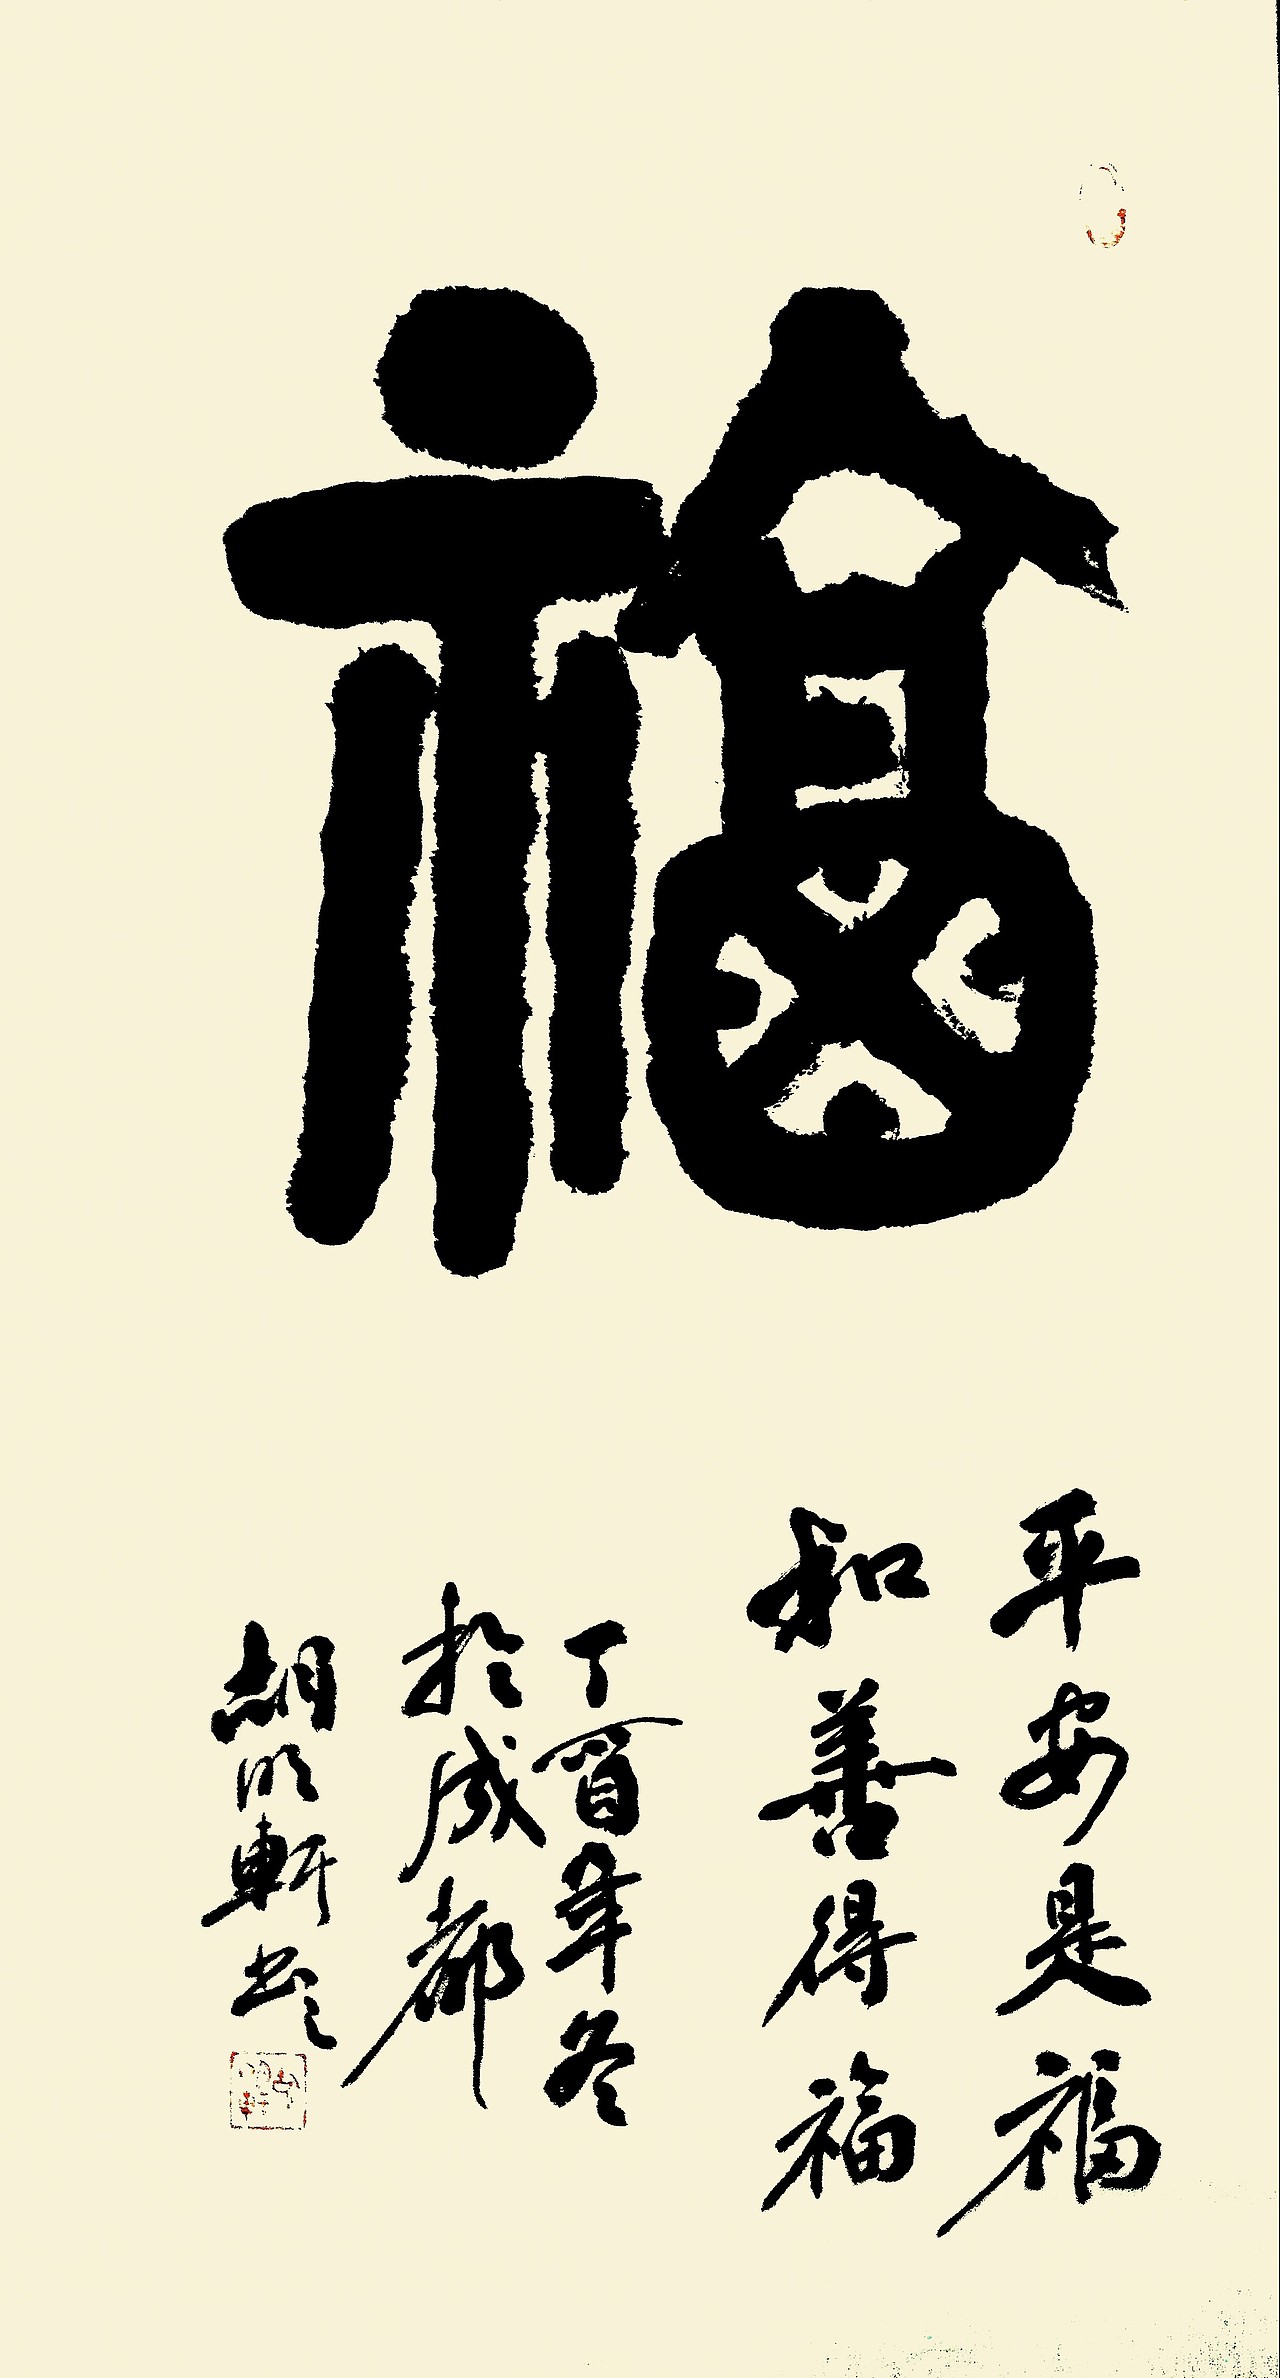 福
平安是福
和善得福
丁酉年冬
於成都
胡明軒书